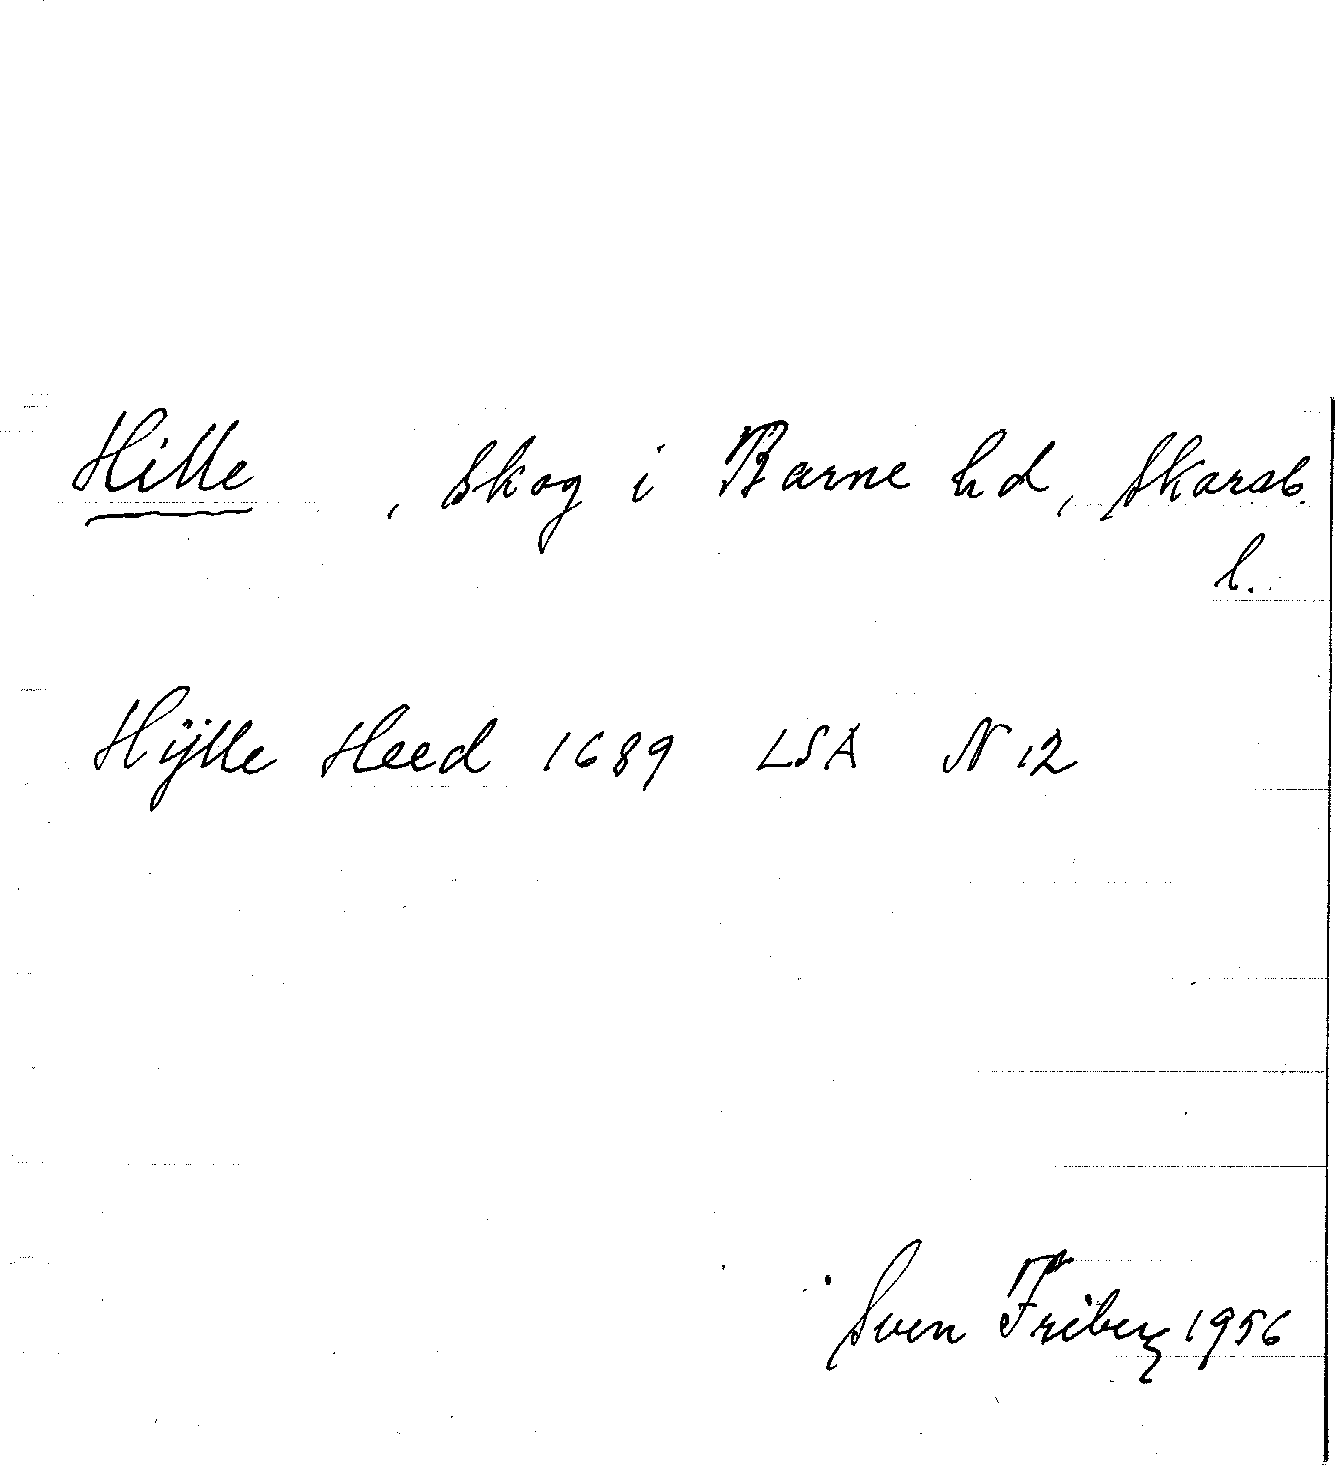 Hille, Skog i Barne hd, Skarab.
l.
Hÿlle Heed 1689 LSA N 12
Sven Friberg 1956